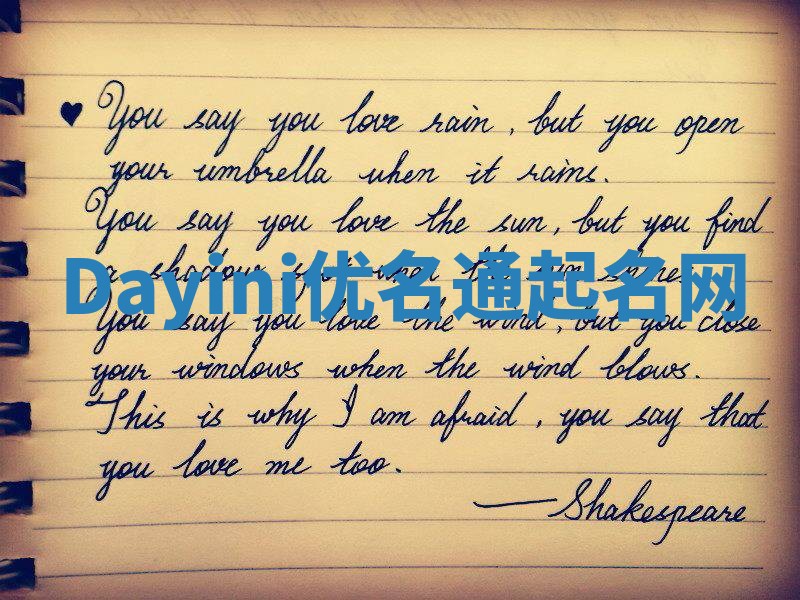 ♥ You say you love rain, but you open
your umbrella when it rains.
You say you love the sun, but you find
a shadow spot when the sun shines.
Dayini优名通起名网
You say you love the wind, but you close
your windows when the wind blows.
This is why I am afraid, you say that
you love me too.
—Shakespeare